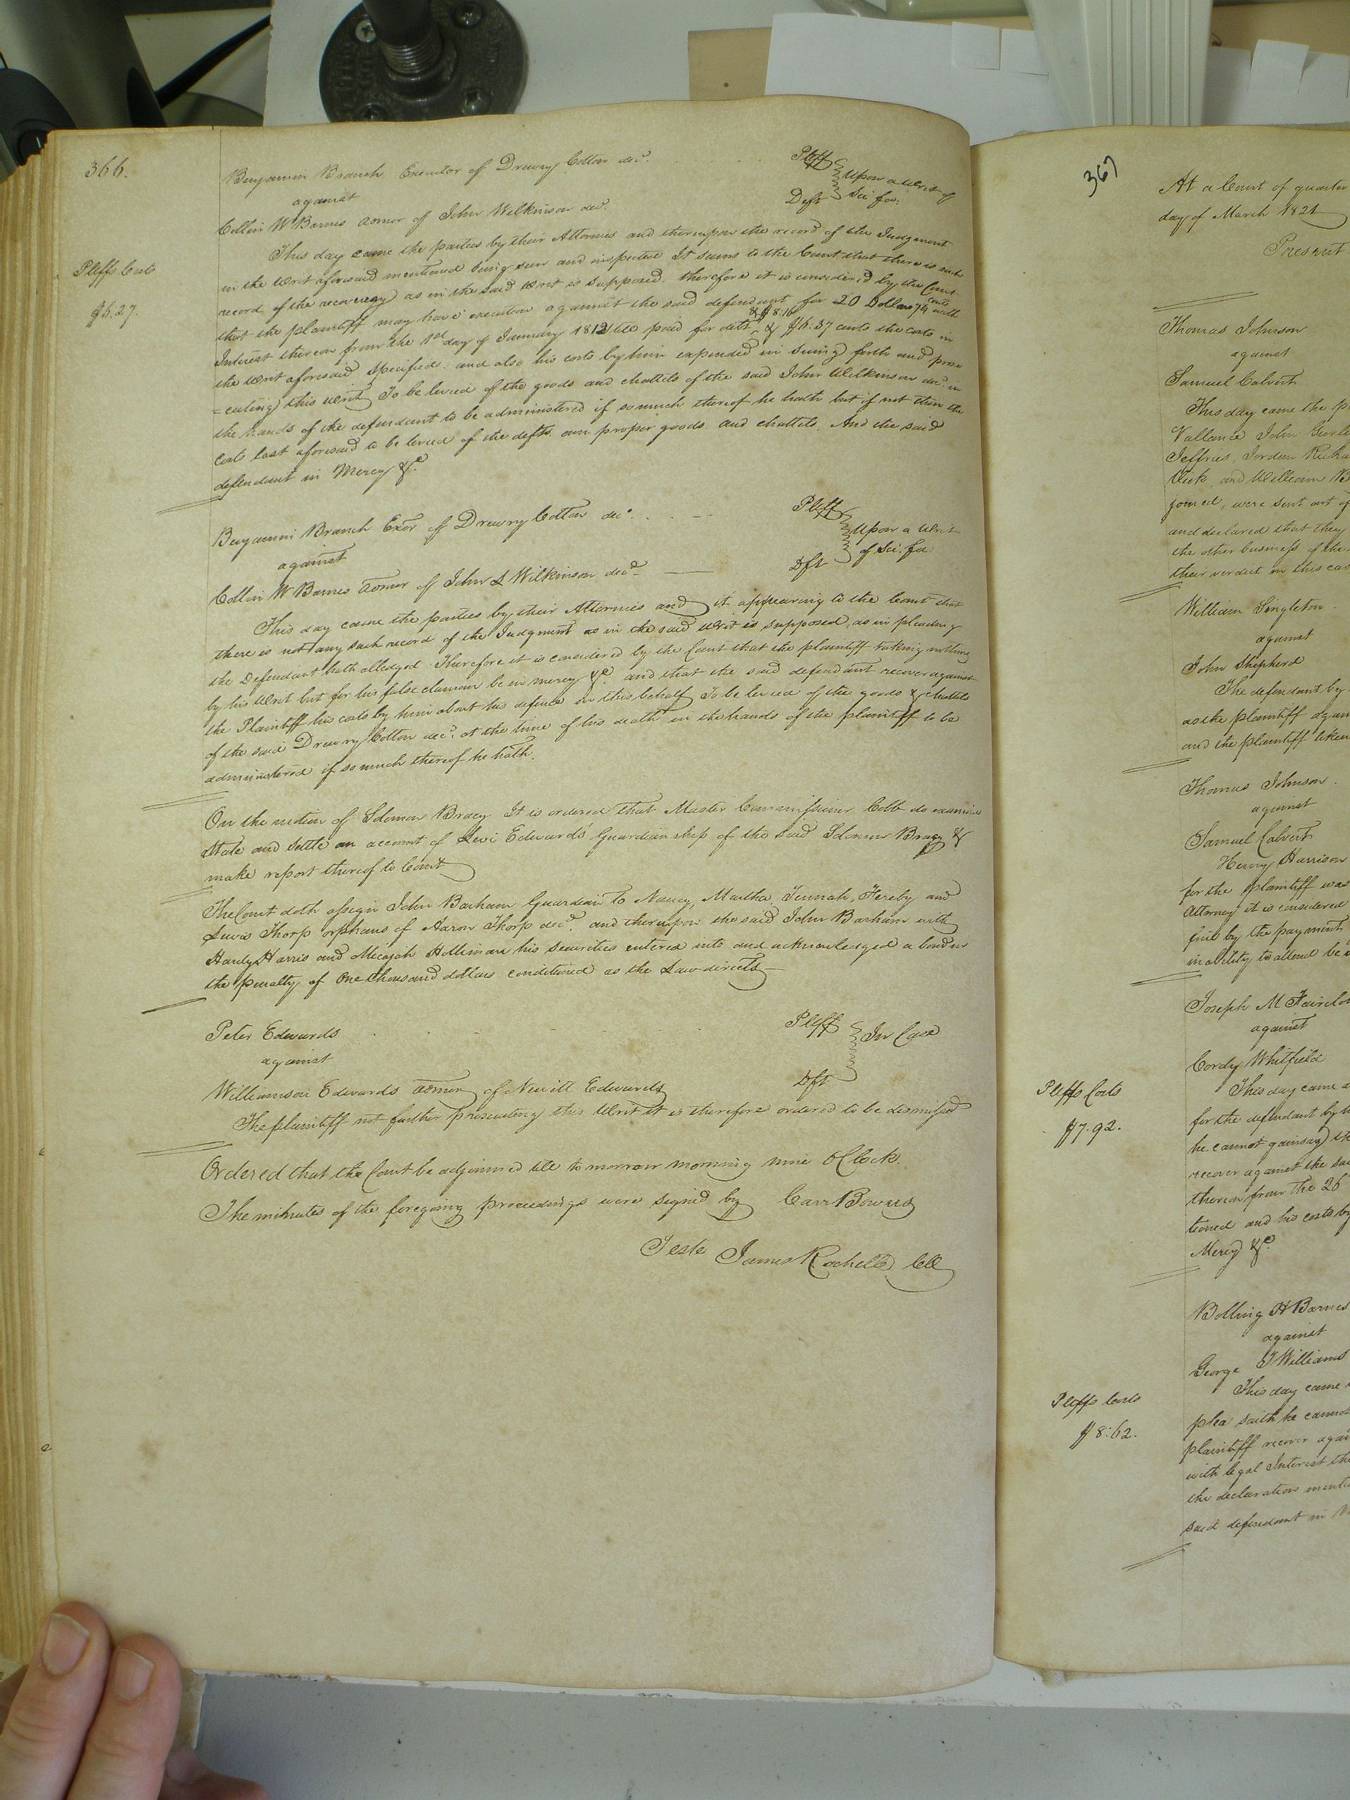 366.
Benjamin Branch Executor of Drewry Cotton decd. Pltff
against Upon a Writ of Sci fa:
Collin W Barnes admor of John Wilkinson decd. Deft
This day came the parties by their Attornies and thereupon the record of the Judgement
in the Writ aforesaid mentioned being seen and inspected It seems to the Court that there is such
Pltffs Costs
$5.27.
record of the recovery as in the said Writ is supposed. therefore it is considered by the Court
that the plaintiff may have execution against the said defendant for 20 Dollars 74 cents with
Interest thereon from the 1st day of January 1812 till paid for debt, & $8.16 & $5.37 cents the costs in
the Writ aforesaid specified. and also his costs by him expended in suing forth and prose
=cuting this writ, To be levied of the goods and chattels of the said John Wilkinson decd. in
the hands of the defendant to be administered if so much thereof he hath but if not then the
costs last aforesaid to be levied of the defts. own proper goods and chattels. And the said
defendant in Mercy &c.
Benjamin Branch Exor of Drewry Cotton decd. Pltff
against Upon a Writ of Sci. fa
Collin W Barnes admor of John L Wilkinson decd. Dft
This day came the parties by their Attornies and it appearing to the Court that
there is not any such record of the Judgment as in the said Writ is supposed, as in pleading
the Defendant hath alledged. Therefore it is considered by the Court that the plaintiff taking nothing
by his Writ but for his false clamour be in mercy &c. and that the said defendant recover against
the Plaintiff his costs by him about his defence in this behalf To be levied of the goods & chattels
of the said Drewry Cotton decd. at the time of his death in the hands of the plaintiff to be
administered if so much thereof he hath.
On the motion of Solomon Bracy It is ordered that Master Commissioner Cobb do examine
state and settle an account of Levi Edwards' Guardianship of the said Solomon Bracy &
make report thereof to Court
The Court doth assign John Barham Guardian to Nancy, Martha, Tennah, Hereby and
Lewis Thorp orphans of Aaron Thorp decd. and thereupon the said John Barham with
Hardy Harris and Micajah Holliman his securities entered into and acknowledged a bond in
the penalty of One thousand dollars conditioned as the Law directs
Peter Edwards Pltff
against In Case
Williamson Edwards admor of Newitt Edwards Dft
The plaintiff not further prosecuting this Writ It is therefore ordered to be dismissed
Ordered that the Court be adjourned till tomorrow morning nine OClock.
The minutes of the foregoing proceedings were signed by Carr Bowers
Teste James Rochelle Cll
367
At a Court of quarter
day of March 1821
Present
Thomas Johnson
against
Samuel Calvert
This day came the p
Vallance John
Jeffries, Jordan Richa
Dick, and William
joined, were sent out of
and declared that they
the other business of the
their verdict in this cas
William Singleton.
against
John Shepherd
The defendant by
as the plaintiff again
and the plaintiff liken
Thomas Johnson.
against
Samuel Calvert
Henry Harrison
for the plaintiff was
Attorney it is considered
fine by the payment
inability to attend be a
Joseph M
against
Cordy Whitfield
Pltffs Costs
$7.92.
This day came a
for the defendant by
he cannot gainsay th
recover against the sai
thereon from the 26
tioned and his costs by
Mercy &c.
Bolling H Barnes
against
George Williams
Pltffs Costs
$8.62.
This day came
plea saith he cannot
plaintiff recover again
with legal Interest the
the declaration menti
said defendant in